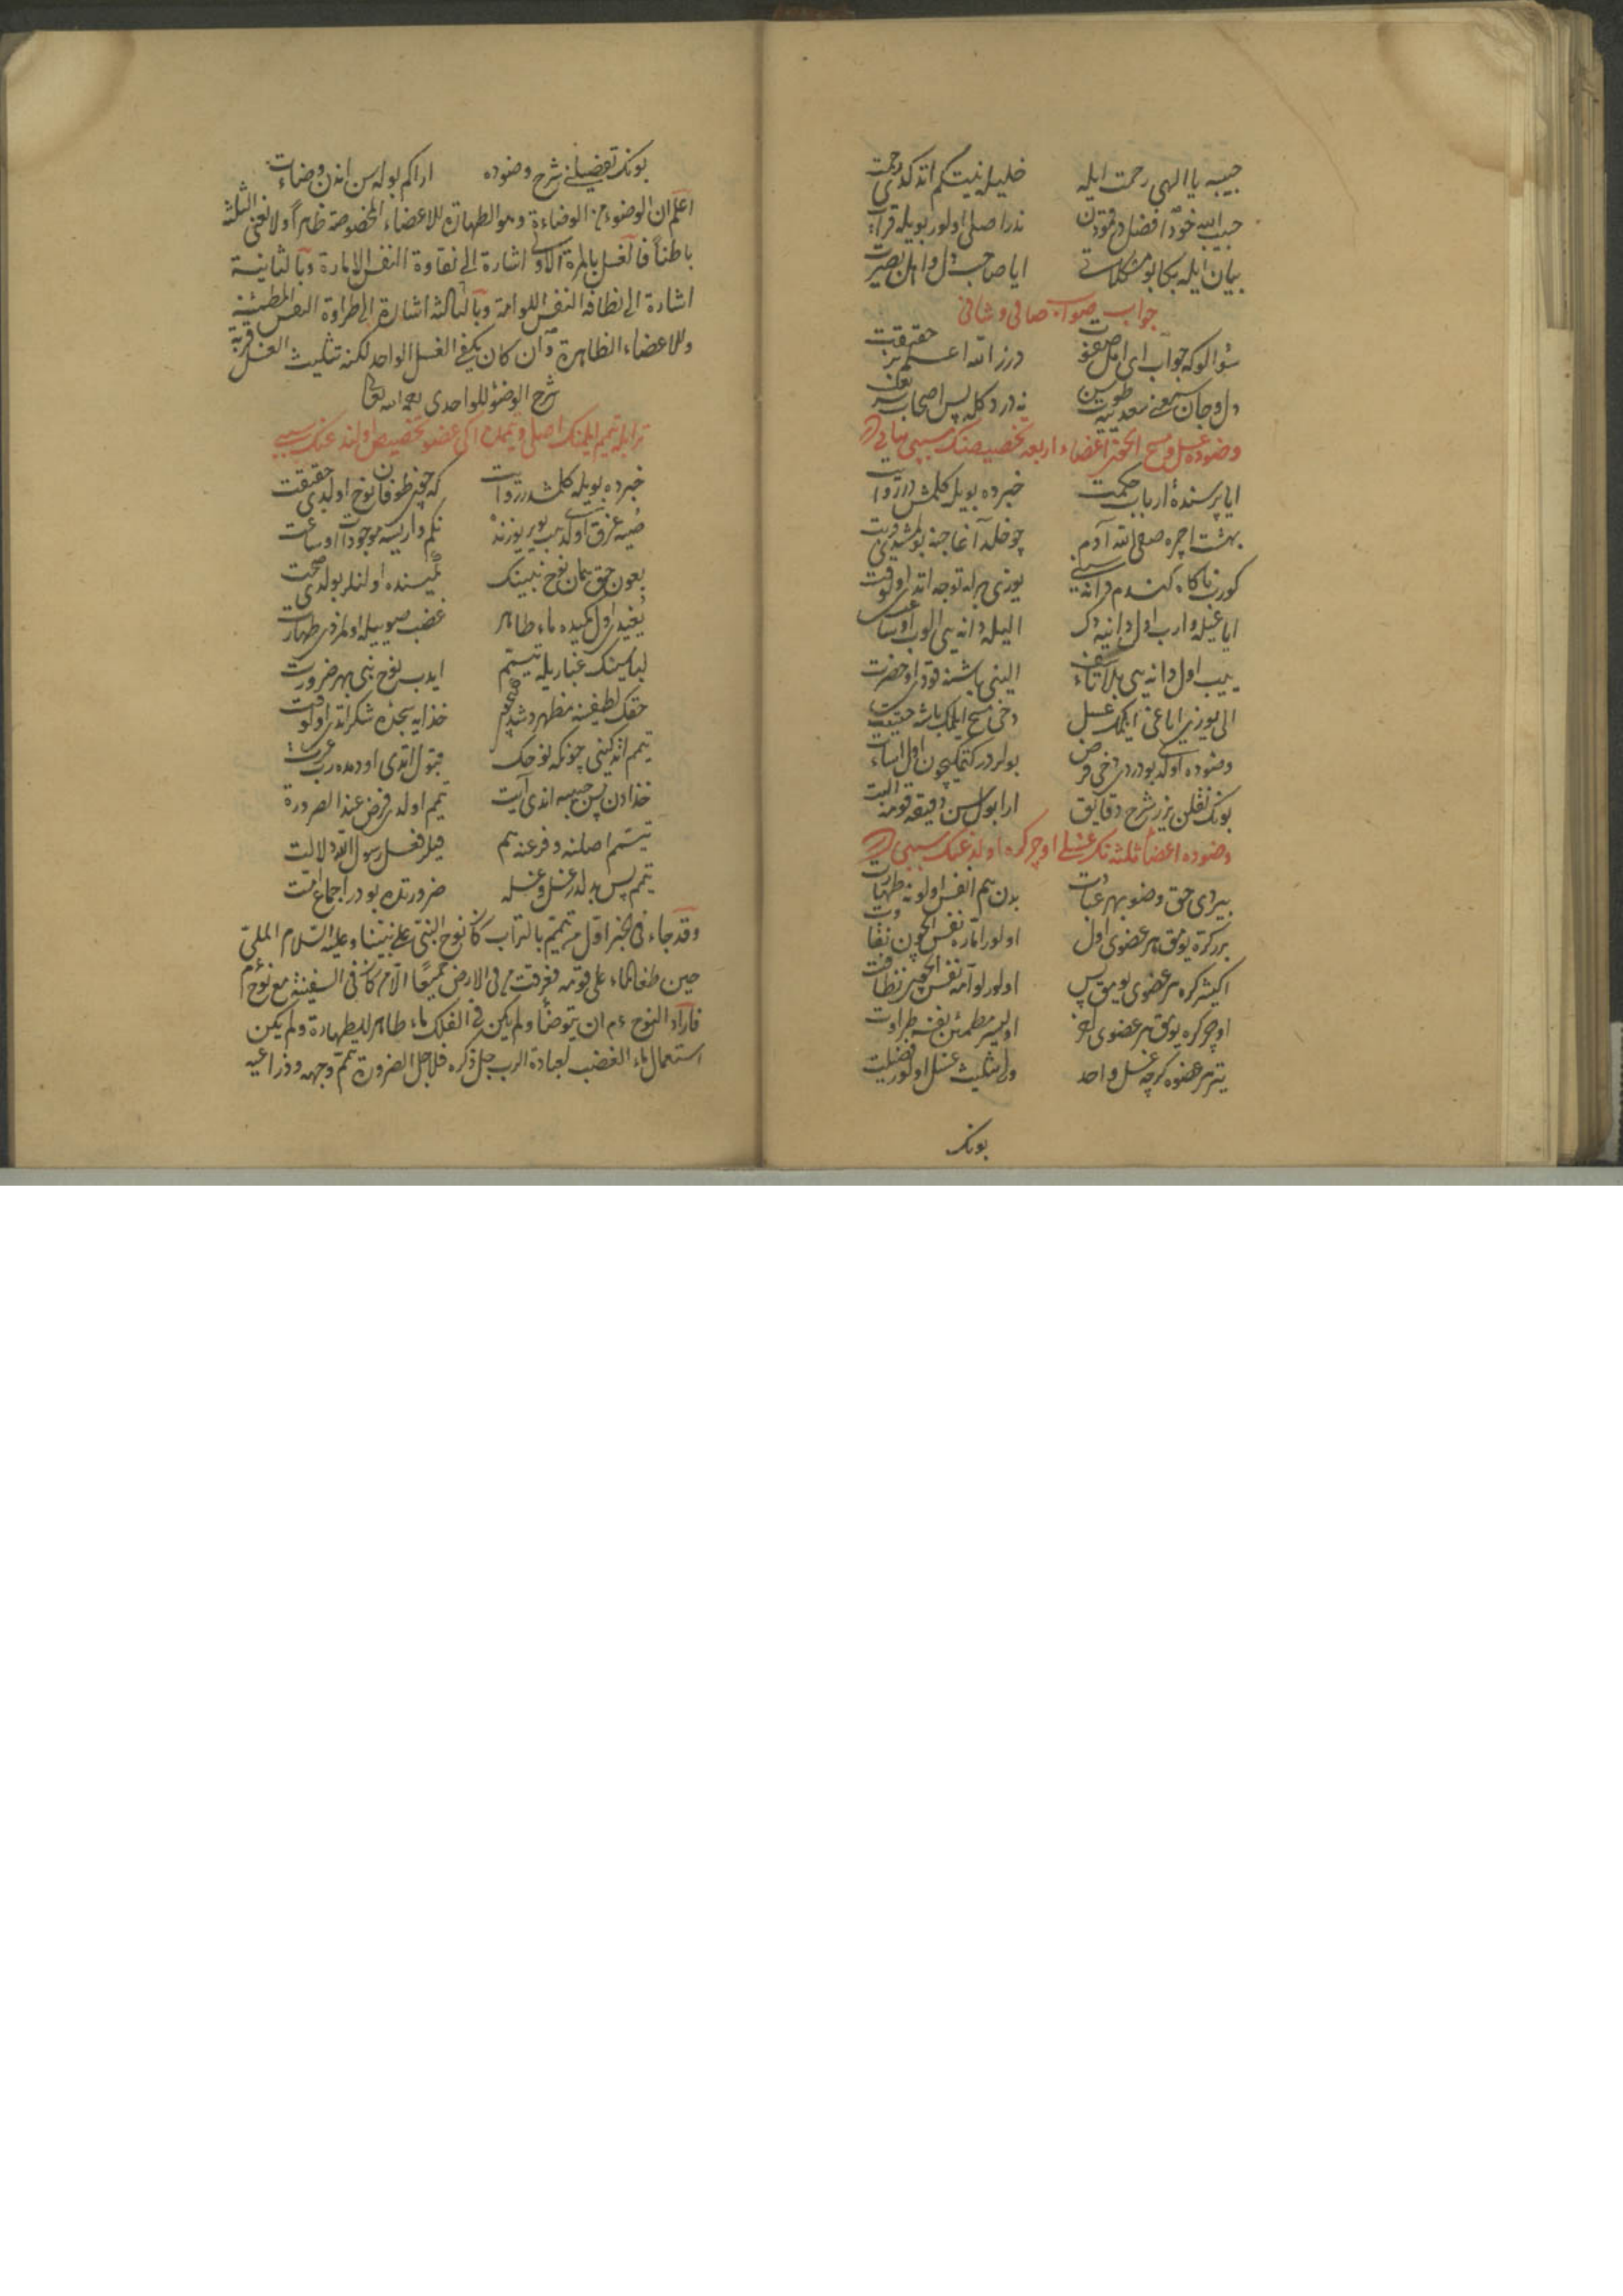 حبيبه يا الهى رحمت ايله خليله نيتكم اتدكدى رحمت
حبيب الله خود افضل در قمودن ندر اصلى اولور بويله قرائت
بيان ايله بكا بو مشكلاتى ايا صاحب دل و اهل بصيرت
جواب صواب صافى و شافى
سؤالوكه جواب اى اهل صفوت درز الله اعلم بز حقيقت
دل و جان سمعنى
وضوده غسل و مسح ايچون اعضاء اربعه تخصيصنك سببى بيانى در
ايا پرسندهٔ ارباب حكمت خبرده بويله كلمشدر روايت
بهشت ايچره صفى الله آدم چو خلد آغاجنه
كورب ناكاه كندم دانه سنى يوزى برله توجه اتدى اول وقت
اياغيله وارب اول دانيه دك اليله دانه يى الوب او ساعت
ييب اول دانه يى الينى باشنه قودى او حضرت
الى يوزى اياغى ايلمك غسل دخى مسح ايلمك باشه حقيقت
وضوده اولدى بو دردى دخى فرض بولردر كتمكيچون اول اساءت
بونك نقلن يزر شرح دقايق ارا بولاسن دقيقه قومه البته
وضوده اعضاء ثلثه نك غسلى اوچر كره اولدوغنك سببى در
بيردى حق وضو بهر عبادت بدن هم انفس اولونه طهارت
بر كره يومق هر عضوى اول اولور اماره نفس ايچون نقاوت
ايكيشر كره هر عضوى يومق پس اولور لوامه نفس ايچون نظافت
اوچر كره يومق هر عضوى اوليسر مطمئن نفسه طراوت
يتر هر عضوه كرچه غسل واحد ولى تثليث غسل اولور فضيلت
بونك
بونك تفصيلنى شرح وضوده ارا كم بوله سن اندن وضائت
اعلم ان الوضوء من الوضاءة وهو الطهارة للاعضاء المخصوصة ظاهراً ولانفس الثلثة
باطناً فالغسل بالمرة الاولى اشارة الى نقاوة النفس الامارة وبالثانية
اشارة الى نظافة النفس اللوامة وبالثالثة اشارة الى طراوة النفس المطمئنة
وللاعضاء الظاهرة وان كان يكفى الغسل الواحد لكنه تثليث الغسل قربة
شرح الوضوء للواحدى رحمه الله تعالى
ترابله تيمم ايلمنك اصلى و تيممده ايكى عضو تخصيص اولندوغنك سببى
خبرده بويله كلمشدر روايت كه چون طوفان نوح اولدى حقيقت
صويه غرق اولدى هب ير يوزنده نكم وار ايسه موجودات او ساعت
بعون حق همان نوح نبينك كميسنده اولنلر بولدى صحت
يغيدى اول كميده ماء طاهر غضب صوييله اولمزدى طهارت
لباسينك غباريله تيمم ايدب نوح نبى بهر ضرورت
حقك لطفينه مظهر خدايه سجده شكر اتدى اول وقت
تيمم اتدكينى چونكه نوحك قبول اتدى اودمده رب عزت
خدادن پس حبيبه اندى آيت تيمم اولدى فرض عند الضرورة
تيمم اصلنه و فرعنه هم قيلر فعل رسول الله دلالت
تيمم پس بدلدر غسل و غسله ضرورتده بودر اجماع امت
وقد جاء فى الخبر اول من تيمم بالتراب كان نوح النبى على نبينا وعليه السلام الملى
حين طغا الماء على قومه فغرقت من فى الارض جميعاً الا من كان فى السفينة مع نوح عم
فاراد النوح عم ان يتوضأ ولم يكن فى الفلك ماء طاهر للطهارة ولم يكن
استعمال ماء الغضب لعبادة الرب جل ذكره فلاجل الضرورة تيمم وجهه وذراعيه